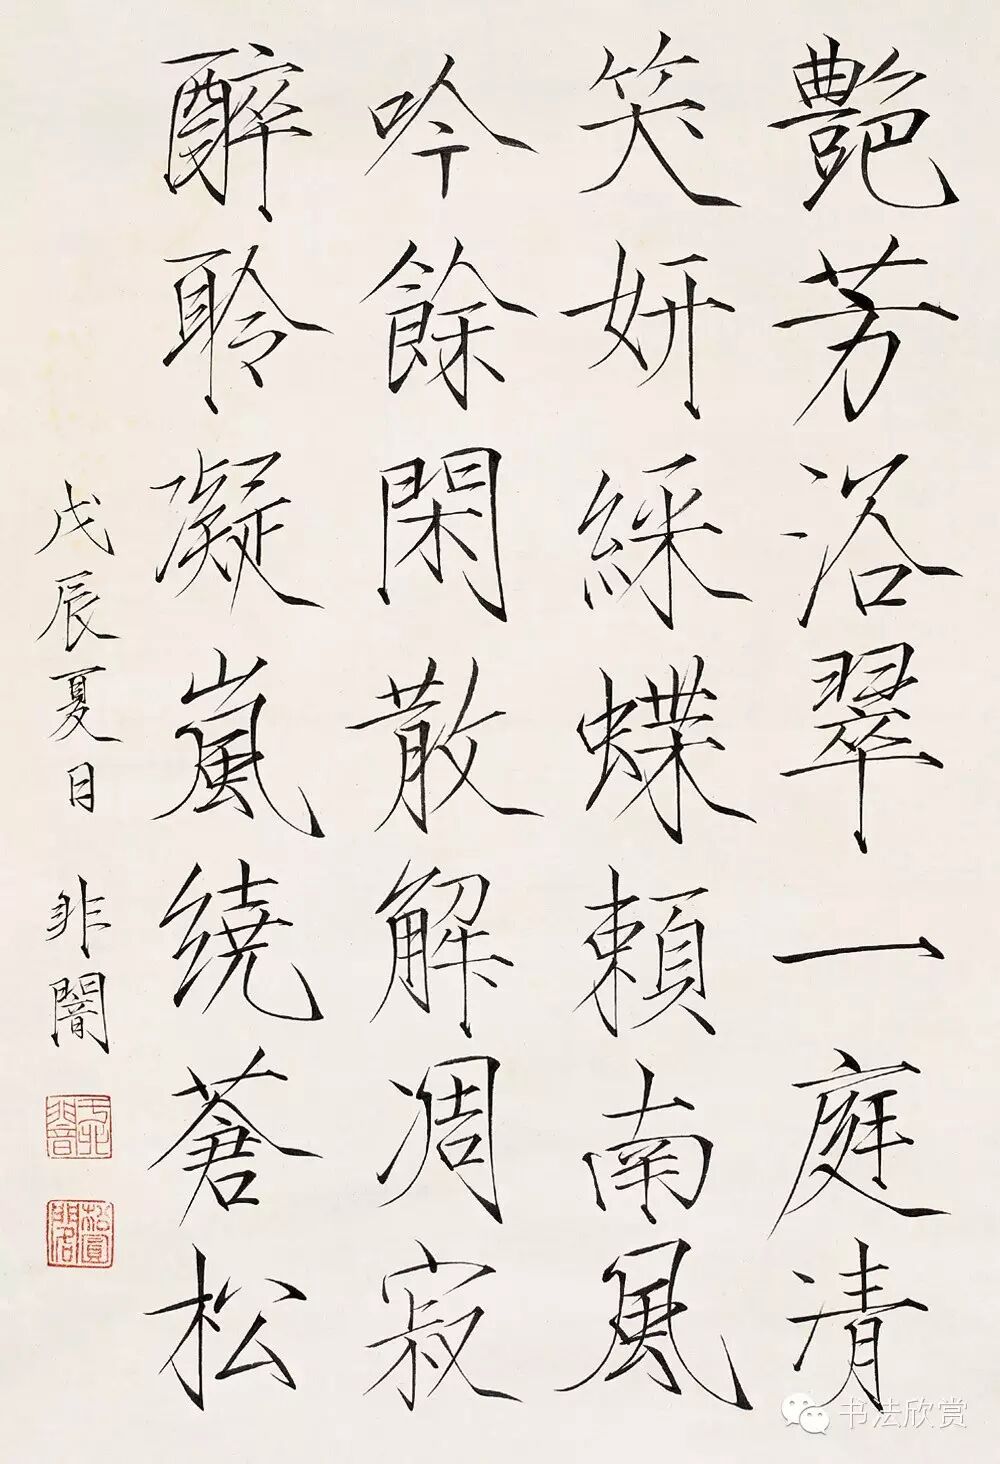 艷芳浴翠一庭清
笑妍綵蝶賴南風
吟餘閑散解凋寂
醉聆凝嵐繞蒼松
戊辰夏日 非闇
于非闇
書法欣賞